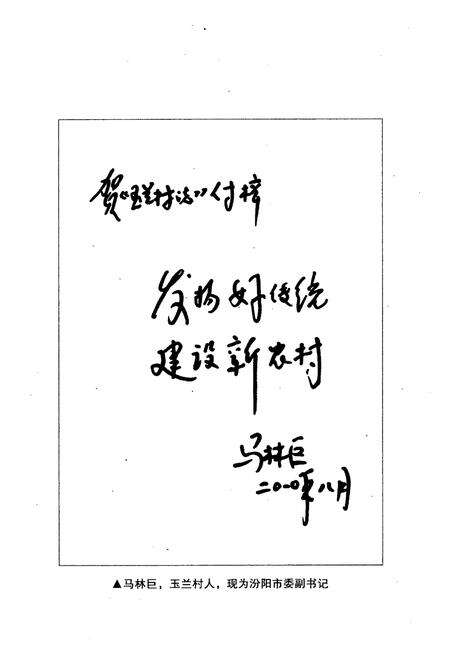 贺《玉兰村志》付梓
发扬好传统
建设新农村
马林巨
二〇一〇年八月
▲马林巨，玉兰村人，现为汾阳市委副书记